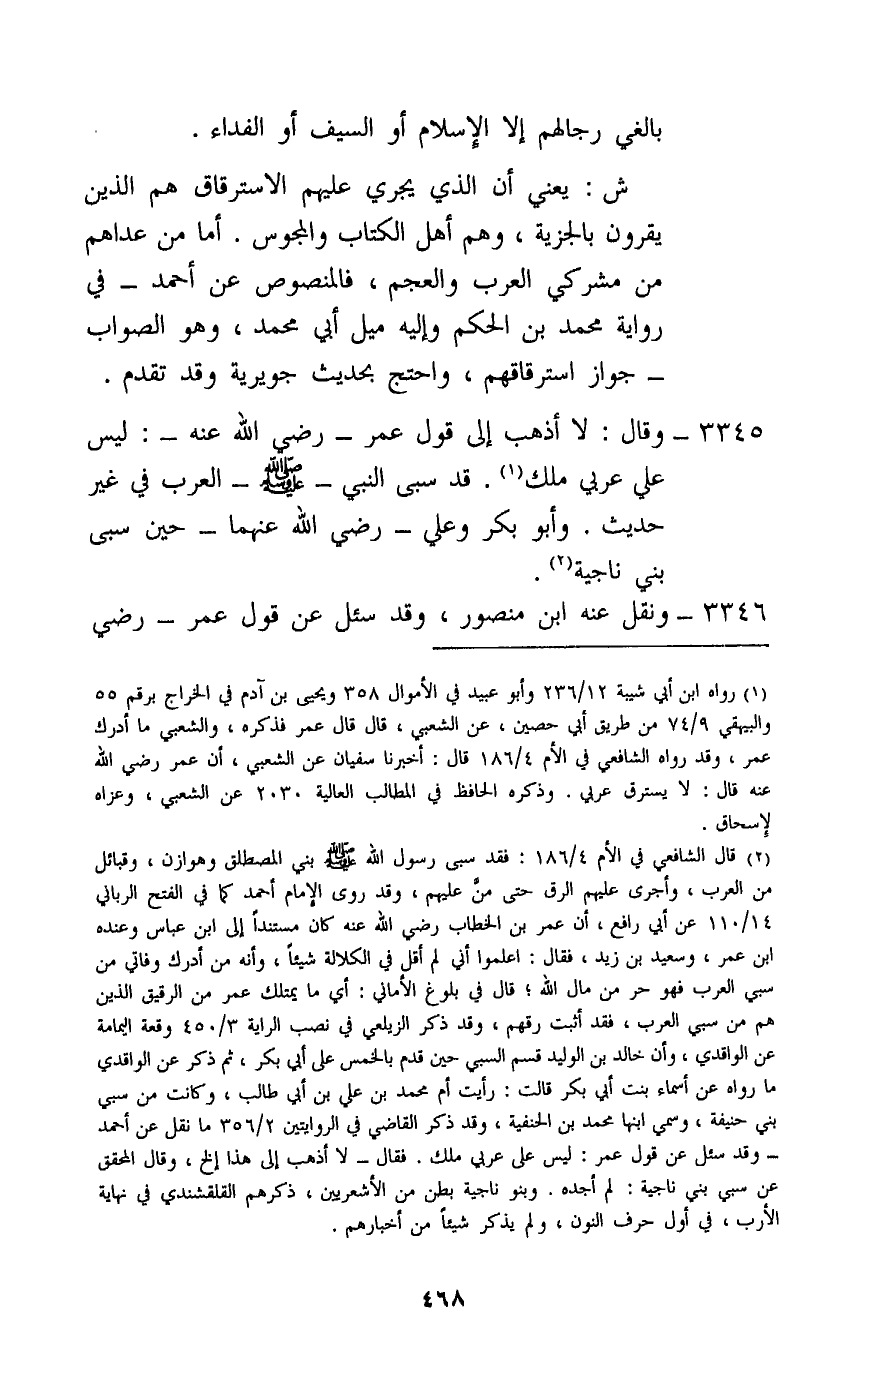 بالغي رجالهم إلا الإسلام أو السيف أو الفداء .
ش : يعني أن الذي يجري عليهم الاسترقاق هم الذين
يقرون بالجزية ، وهم أهل الكتاب والمجوس . أما من عداهم
من مشركي العرب والعجم ، فالمنصوص عن أحمد – في
رواية محمد بن الحكم وإليه ميل أبي محمد ، وهو الصواب
– جواز استرقاقهم ، واحتج بحديث جويرية وقد تقدم .
٣٣٤٥ – وقال : لا أذهب إلى قول عمر – رضي الله عنه – : ليس
على عربي ملك(١) . قد سبى النبي – ﷺ – العرب في غير
حديث . وأبو بكر وعلي – رضي الله عنهما – حين سبى
بني ناجية(٢) .
٣٣٤٦ – ونقل عنه ابن منصور ، وقد سئل عن قول عمر – رضي
(١) رواه ابن أبي شيبة ٢٣٦/١٢ وأبو عبيد في الأموال ٣٥٨ ويحيى بن آدم في الخراج برقم ٥٥
والبيهقي ٧٤/٩ من طريق أبي حصين ، عن الشعبي ، قال قال عمر فذكره ، والشعبي ما أدرك
عمر ، وقد رواه الشافعي في الأم ١٨٦/٤ قال : أخبرنا سفيان عن الشعبي ، أن عمر رضي الله
عنه قال : لا يسترق عربي . وذكره الحافظ في المطالب العالية ٢٠٣٠ عن الشعبي ، وعزاه
لإسحاق .
(٢) قال الشافعي في الأم ١٨٦/٤ : فقد سبى رسول الله ﷺ بني المصطلق وهوازن ، وقبائل
من العرب ، وأجرى عليهم الرق حتى منَّ عليهم ، وقد روى الإمام أحمد كما في الفتح الرباني
١١٠/١٤ عن أبي رافع ، أن عمر بن الخطاب رضي الله عنه كان مستنداً إلى ابن عباس وعنده
ابن عمر ، وسعيد بن زيد ، فقال : اعلموا أني لم أقل في الكلالة شيئاً ، وأنه من أدرك وفاتي من
سبي العرب فهو حر من مال الله ؛ قال في بلوغ الأماني : أي ما يمتلك عمر من الرقيق الذين
هم من سبي العرب ، فقد أثبت رقهم ، وقد ذكر الزيلعي في نصب الراية ٤٥٠/٣ وقعة اليمامة
عن الواقدي ، وأن خالد بن الوليد قسم السبي حين قدم بالخمس على أبي بكر ، ثم ذكر عن الواقدي
ما رواه عن أسماء بنت أبي بكر قالت : رأيت أم محمد بن علي بن أبي طالب ، وكانت من سبي
بني حنيفة ، وسمي ابنها محمد بن الحنفية ، وقد ذكر القاضي في الروايتين ٣٥٦/٢ ما نقل عن أحمد
– وقد سئل عن قول عمر : ليس على عربي ملك . فقال – لا أذهب إلى هذا إلخ ، وقال المحقق
عن سبي بني ناجية : لم أجده . وبنو ناجية بطن من الأشعريين ، ذكرهم القلقشندي في نهاية
الأرب ، في أول حرف النون ، ولم يذكر شيئاً من أخبارهم .
٤٦٨